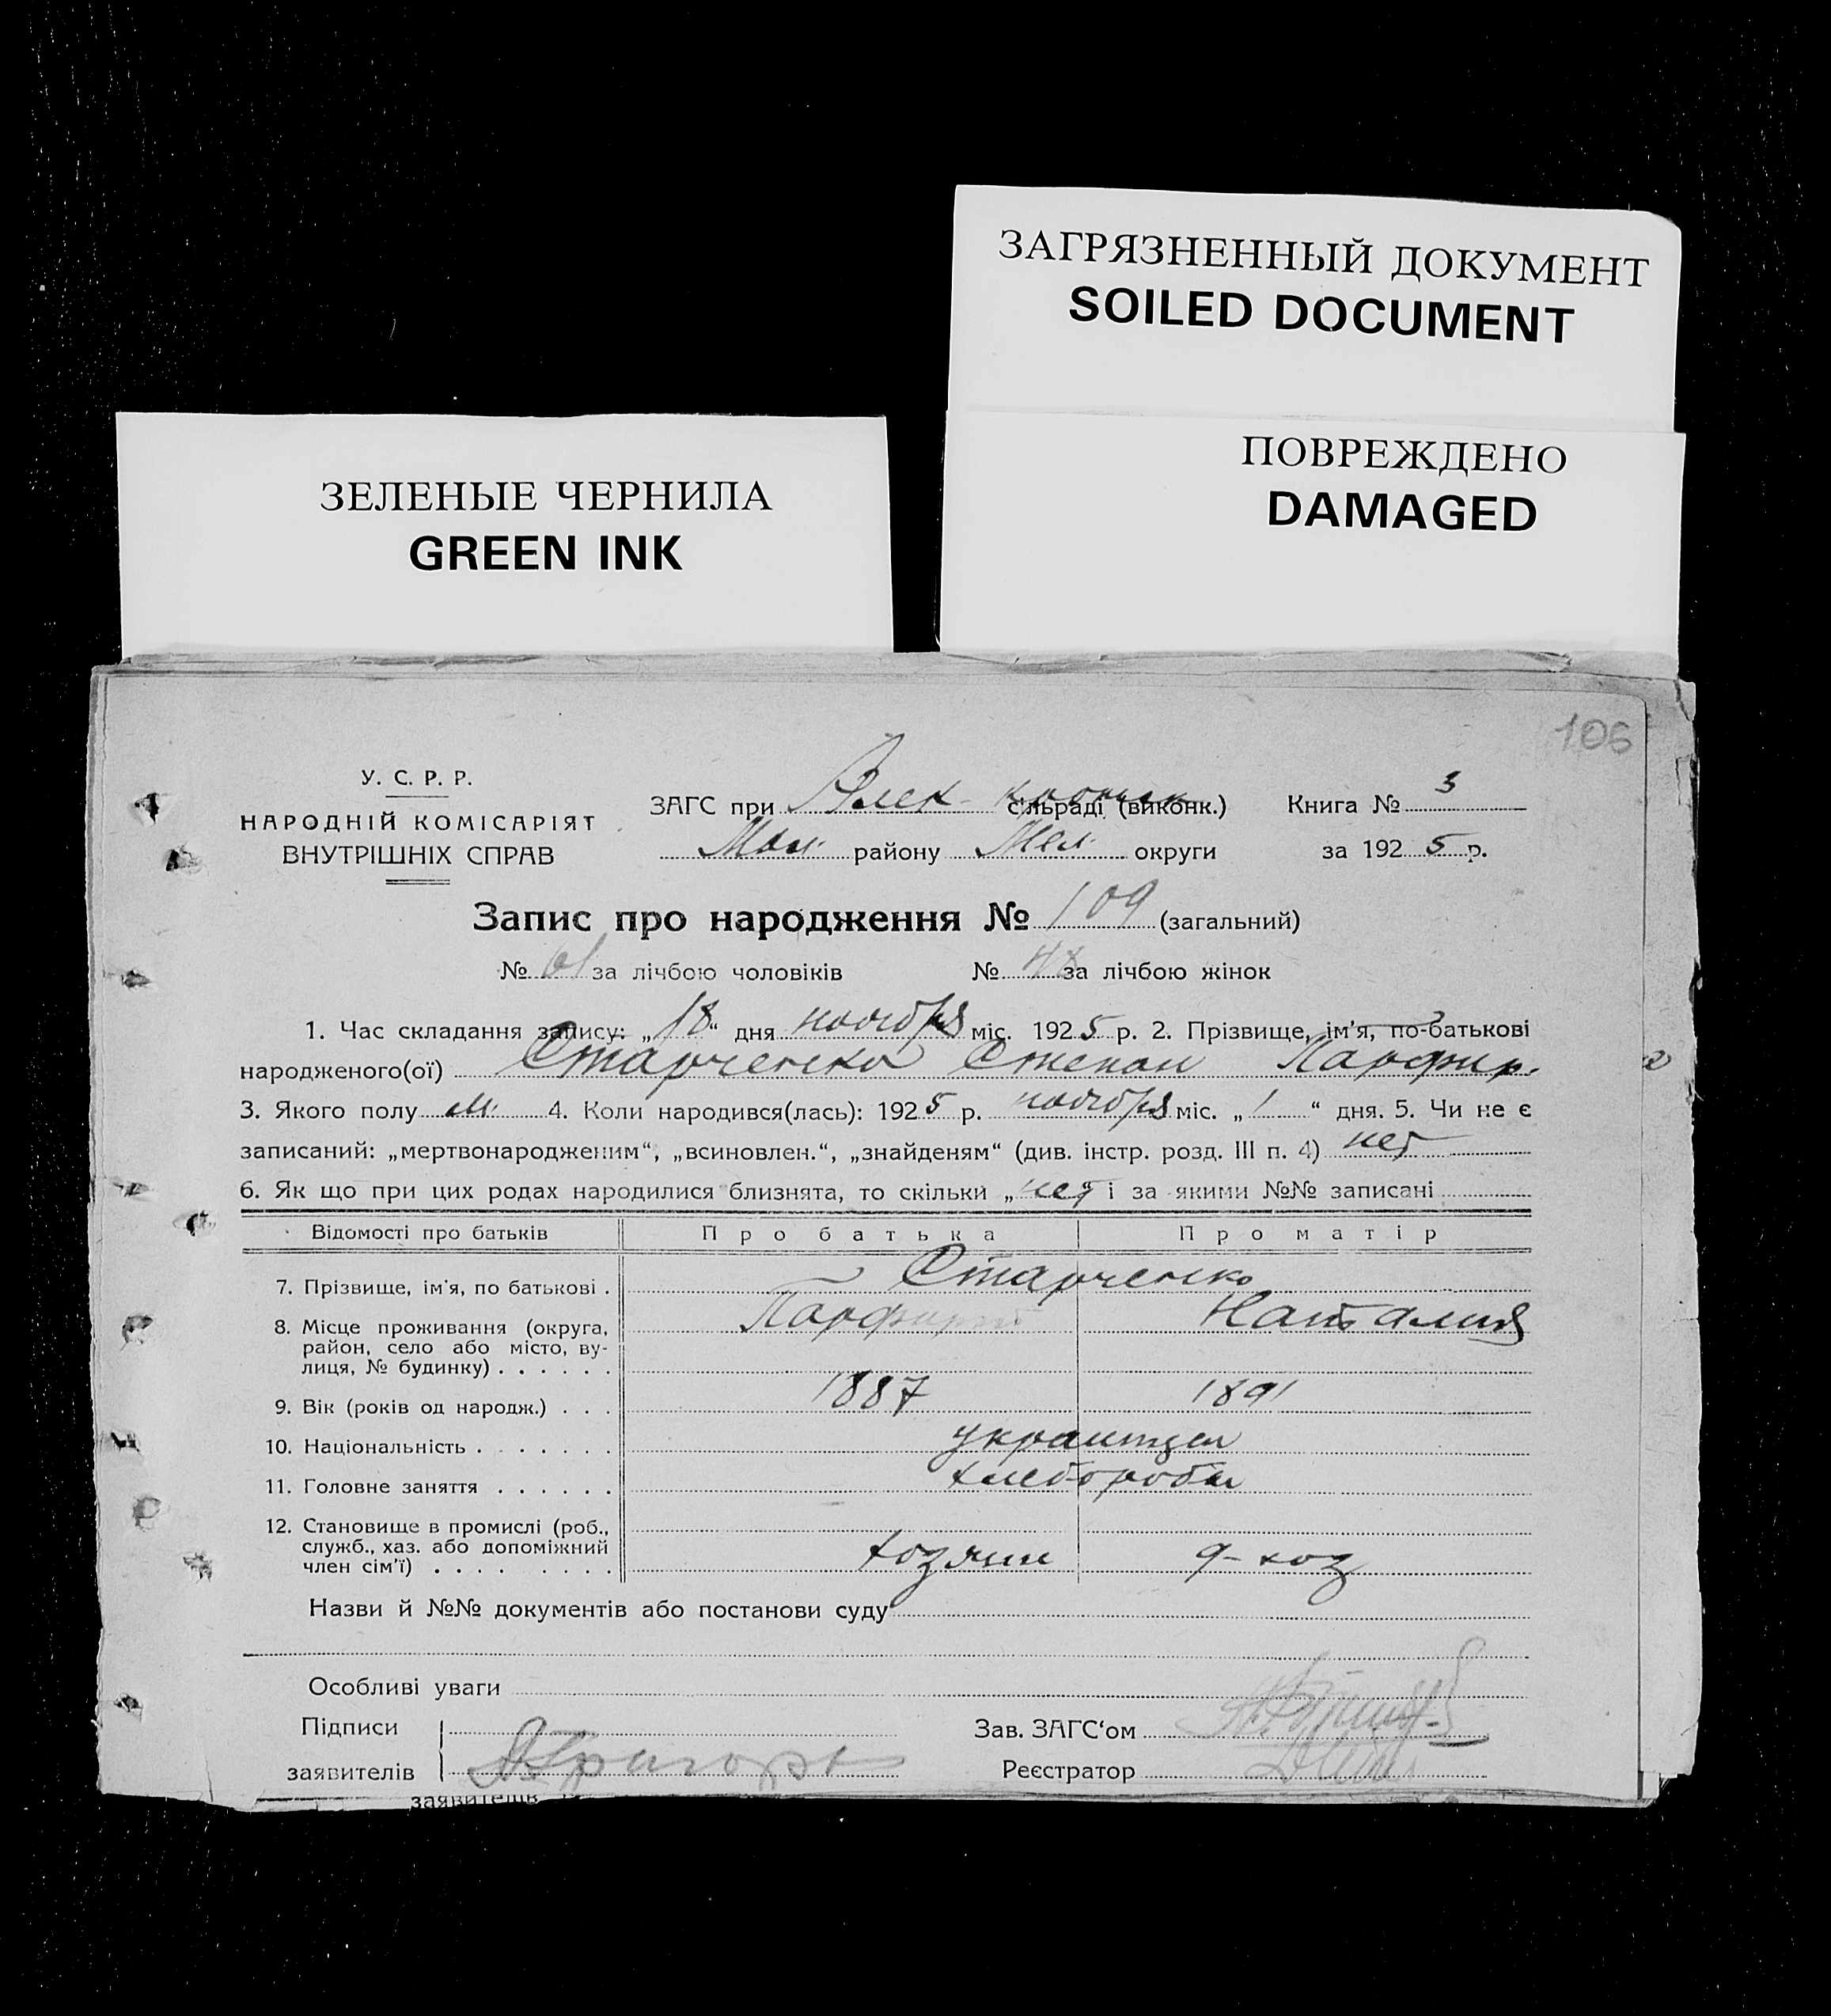 ЗАГРЯЗНЕННЫЙ ДОКУМЕНТ
SOILED DOCUMENT
ПОВРЕЖДЕНО
DAMAGED
ЗЕЛЕНЫЕ ЧЕРНИЛА
GREEN INK
106
У. С. Р. Р.
НАРОДНІЙ КОМІСАРІЯТ
ВНУТРІШНІХ СПРАВ
ЗАГС при Алек- сільраді (виконк.) Книга № 3
району Мел. округи за 1925 р.
Запис про народження № 109 (загальний)
№ 61 за лічбою чоловіків № 48 за лічбою жінок
1. Час складання запису: „18“ дня ноября міс. 1925 р. 2. Прізвище, ім'я, по-батькові
народженого(ої) Старченко Степан Парфир.
3. Якого полу м. 4. Коли народився(лась): 1925 р. ноября міс. „1“ дня. 5. Чи не є
записаний: „мертвонародженим“, „всиновлен.“, „знайденям“ (див. інстр. розд. III п. 4) нет
6. Як що при цих родах народилися близнята, то скільки „нет і за якими №№ записані
Відомості про батьків Про батька Про матір
7. Прізвище, ім'я, по батькові . Старченко
8. Місце проживання (округа, район, село або місто, вулиця, № будинку) . . . . . . Наталия
9. Вік (років од народж.) . . . 1887 1891
10. Національність . . . . . . . украинцы
11. Головне заняття . . . . . . хлеборобы
12. Становище в промислі (роб.,
служб., хаз. або допоміжний
член сім'ї) . . . . . . . . хозяин
Назви й №№ документів або постанови суду
Особливі уваги
Підписи
Зав. ЗАГС‘ом
заявителів
Реєстратор
заявителів